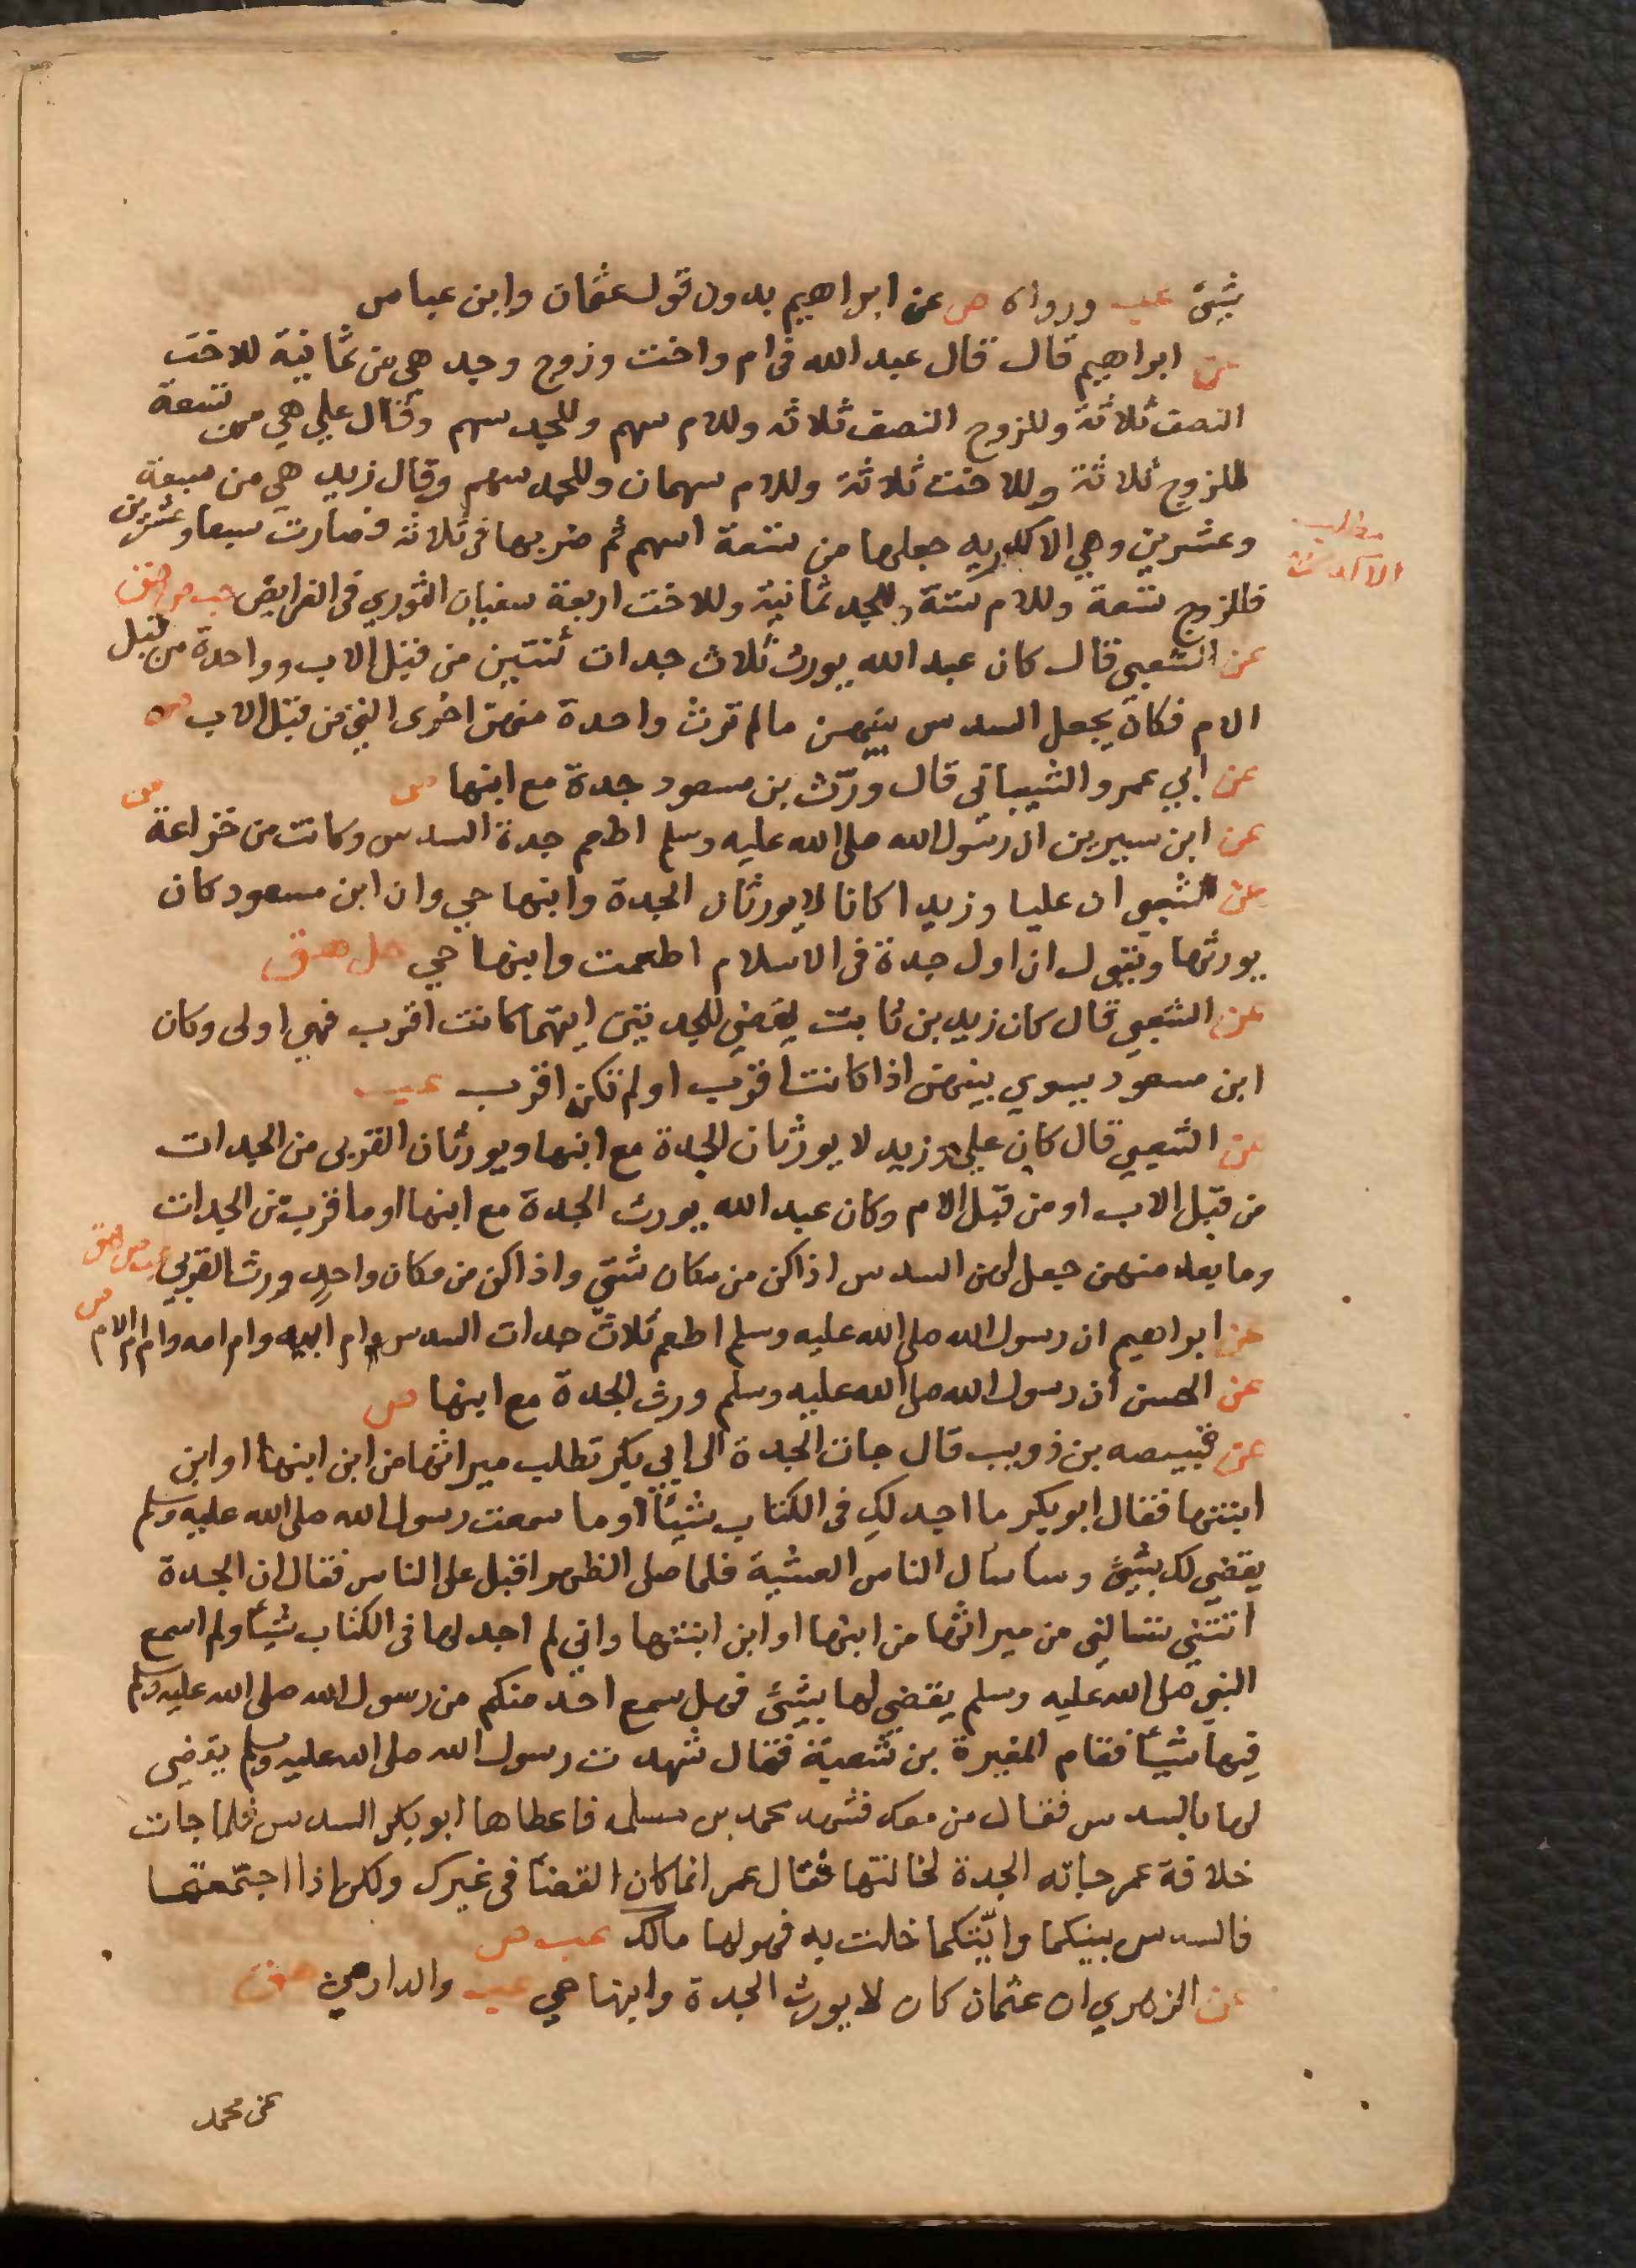 بشئ عب ورواه ص عن ابراهيم بدون قول عثمان وابن عباس
عن ابراهيم قال قال عبد الله فى ام واخت وزوج وجد هي من ثمانية للاخت
النصف ثلاثة وللزوج النصف ثلاثه وللام سهم وللجد سهم وقال علي هي من تسعة
للزوج ثلاثة وللاخت ثلاثة وللام سهمان وللجد سهم وقال زيد هي من سبعة
وعشرين وهي الاكدريه جعلها من تسعة اسهم ثم ضربها فى ثلاثه فصارت سبعا وعشرين
مطلب
الاكدرية
فللزوج تسعة وللام ستة وللجد ثمانية وللاخت اربعة سفيان الثوري فى الفرايض عب ص هق
عن الشعبى قال كان عبد الله يورث ثلاث جدات ثنتين من قبل الاب وواحدة من قبل
الام فكان يجعل السدس بينهن مالم ترث واحدة منهن اخرى التي من قبل الاب ص
عن ابي عمرو الشيباني قال ورّث بن مسعود جدة مع ابنها ص
عن ابن سيرين ان رسول الله صلى الله عليه وسلم اطعم جدة السدس وكانت من خزاعة ص
عن الشعبي ان عليا وزيدا كانا لا يورثان الجدة وابنها حي وان ابن مسعود كان
يورثها ويقول ان اول جدة فى الاسلام اطعمت وابنها حي ص هق
عن الشعبي قال كان زيد بن ثابت يقضي للجدتين ايتهما كانت اقرب فهي اولى وكان
ابن مسعود يسوي بينهن اذا كانت اقرب او لم تكن اقرب عب
عن الشعبي قال كان علي وزيد لا يورثان الجدة مع ابنها ويورثان القربى من الجدات
من قبل الاب او من قبل الام وكان عبد الله يورث الجدة مع ابنها او ما قرب من الجدات
وما بعد منهن جعل لهن السدس اذا كن من مكان شتى واذا كن من مكان واحد ورث القربي عب ص هق
عن ابراهيم ان رسول الله صلى الله عليه وسلم اطعم ثلاث جدات السدس ام ابيه وام امه وام ام الام ص
عن الحسن ان رسول الله صلى الله عليه وسلم ورث الجدة مع ابنها ص
عن قبيصه بن ذويب قال جات الجدة الى ابي بكر تطلب ميراثها من ابن ابنها او ابن
ابنتها فقال ابو بكر ما اجد لكِ فى الكتاب شيئا وما سمعت رسول الله صلى الله عليه وسلم
يقضي لك بشئ وساسال الناس العشية فلما صلى الظهر اقبل على الناس فقال ان الجدة
اتتني تسالنى من ميراثها من ابنها او ابن ابنتها واني لم اجد لها فى الكتاب شيئا ولم اسمع
النبي صلى الله عليه وسلم يقضي لها بشئ فهل سمع احد منكم من رسول الله صلى الله عليه وسلم
فيها شيئا فقام المغيرة بن شعبة فقال شهدت رسول الله صلى الله عليه وسلم يقضى
لها بالسدس فقال من معك فشهد محمد بن مسلمه فاعطاها ابو بكر السدس فلما جات
خلافة عمر جاته الجدة لخالتها فقال عمر انما كان القضا فى غيرك ولكن اذا اجتمعتما
فالسدس بينكما وايتكما خلت به فهو لها مالك عب ص
عن الزهري ان عثمان كان لا يورث الجدة وابنها حي عب والدارمي هق
عن محمد